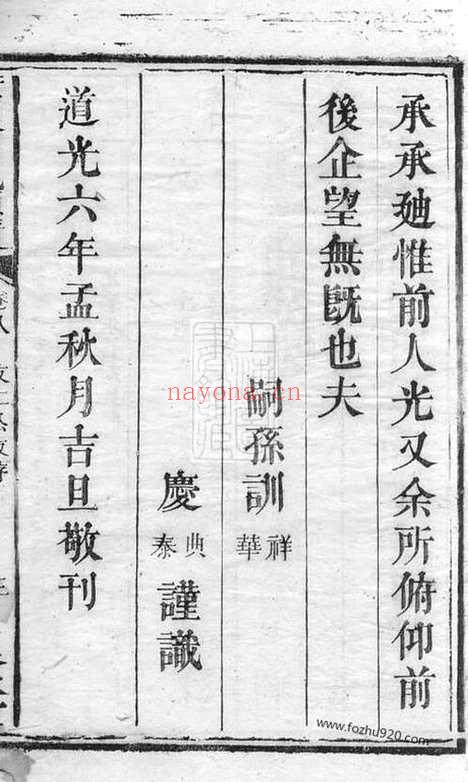 承承廸惟前人光又余所俯仰前
後企望無旣也夫
嗣孫訓祥華
慶典泰謹識
道光六年孟秋月吉旦敬刊
nayona.cn
www.fozhu920.com